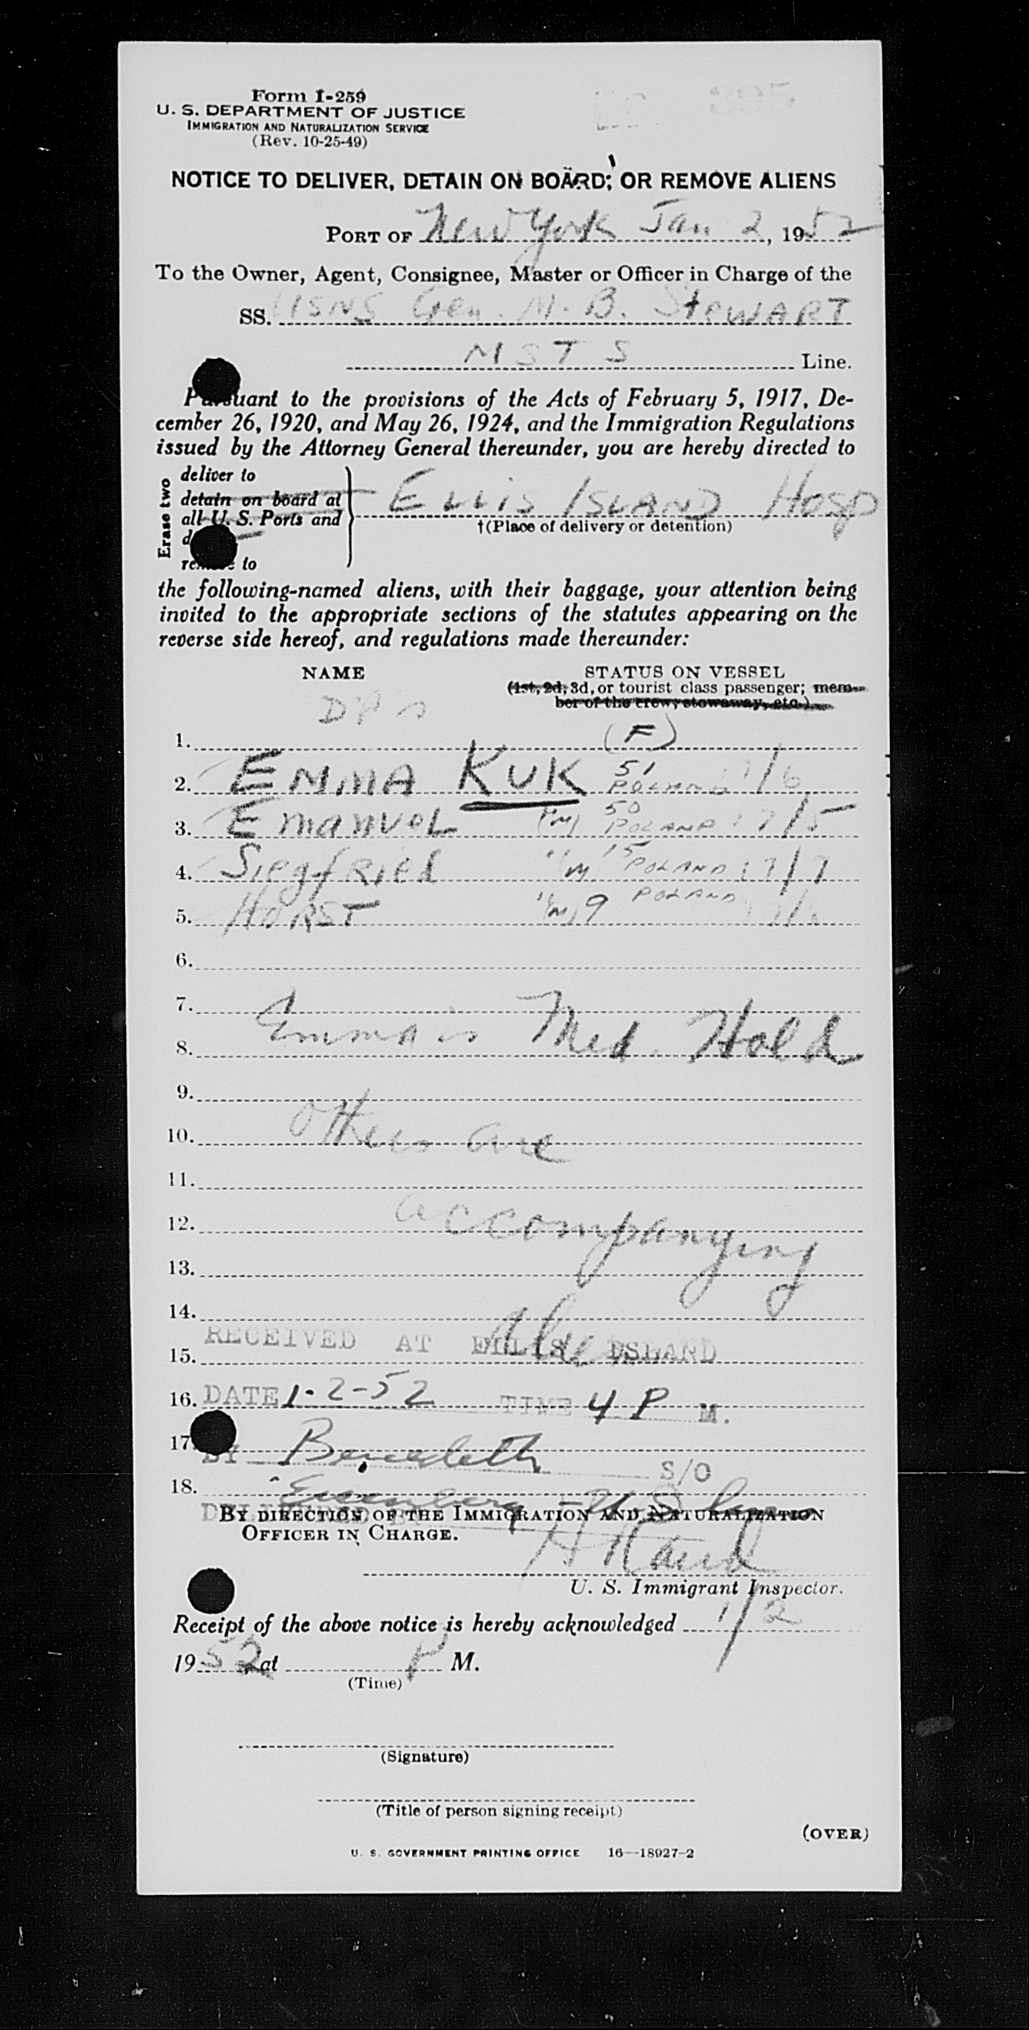 Form I-259
U. S. DEPARTMENT OF JUSTICE
IMMIGRATION AND NATURALIZATION SERVICE
(Rev. 10-25-49)
NOTICE TO DELIVER, DETAIN ON BOARD, OR REMOVE ALIENS
PORT OF New York Jan 2, 1952
To the Owner, Agent, Consignee, Master or Officer in Charge of the
SS. USNS Gen. M. B. STEWART
MSTS Line.
Pursuant to the provisions of the Acts of February 5, 1917, De-
cember 26, 1920, and May 26, 1924, and the Immigration Regulations
issued by the Attorney General thereunder, you are hereby directed to
Erase two
deliver to
detain on board at
all U. S. Ports and
remove to
ELLIS ISLAND HOSP
†(Place of delivery or detention)
the following-named aliens, with their baggage, your attention being
invited to the appropriate sections of the statutes appearing on the
reverse side hereof, and regulations made thereunder:
NAME STATUS ON VESSEL
(1st, 2d, 3d, or tourist class passenger; mem-
ber of the crew, stowaway, etc.)
DPs
1. (F)
2. EMMA KUK 51 POLAND 17/6
3. EMANUEL (M) 50 POLAND 17/5
4. SIEGFRIED " M 15 POLAND 17/7
5. HORST "(M) 9 POLAND
6.
7.
8. Emma is Med. Hold
9.
10. Others are
11.
12. accompanying
13.
14.
15. RECEIVED AT ELLIS ISLAND
16. DATE 1-2-52 TIME 4 P M.
17. BY S/O
18.
BY DIRECTION OF THE IMMIGRATION AND NATURALIZATION
OFFICER IN CHARGE.
U. S. Immigrant Inspector.
Receipt of the above notice is hereby acknowledged 1/2
1952 at P M.
(Time)
(Signature)
(Title of person signing receipt)
(OVER)
U. S. GOVERNMENT PRINTING OFFICE 16—18927-2